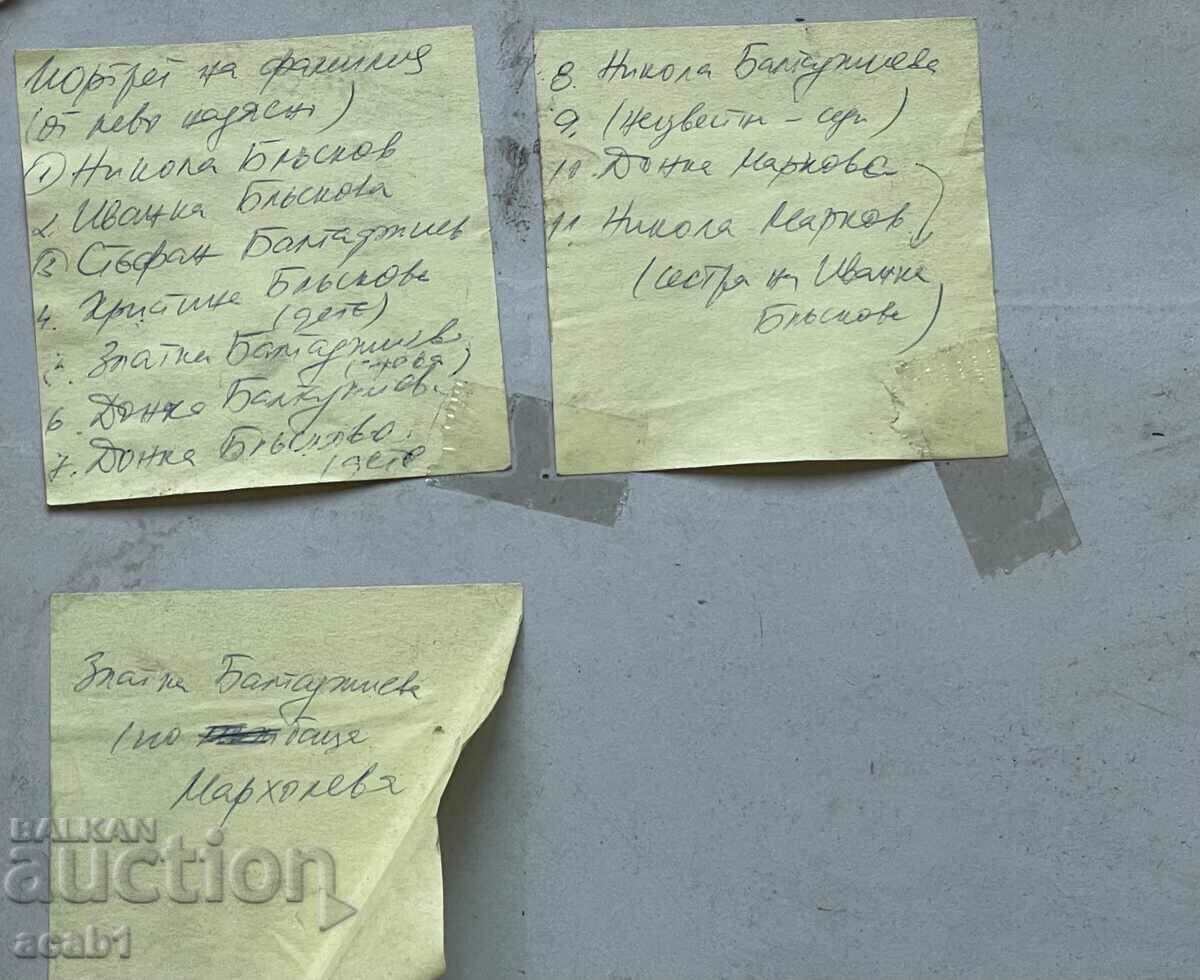 Портрет на фамилия
(от лево надясно)
1. Никола Блъсков
2. Иванка Блъскова
3. Стефан Балтаджиев
4. Христина Блъскова
(дете)
5. Златка Балтаджиева
6. Донка Балтаджиева
7. Донка Блъскова
(дете
8. Никола Балтаджиева
9. (неизвестн - седи)
10. Донка Маркова
11. Никола Марков
(сестра на Иванка
Блъскова)
Златка Балтаджиева
(по баща
Мархолева
BALKAN
auction
acab1